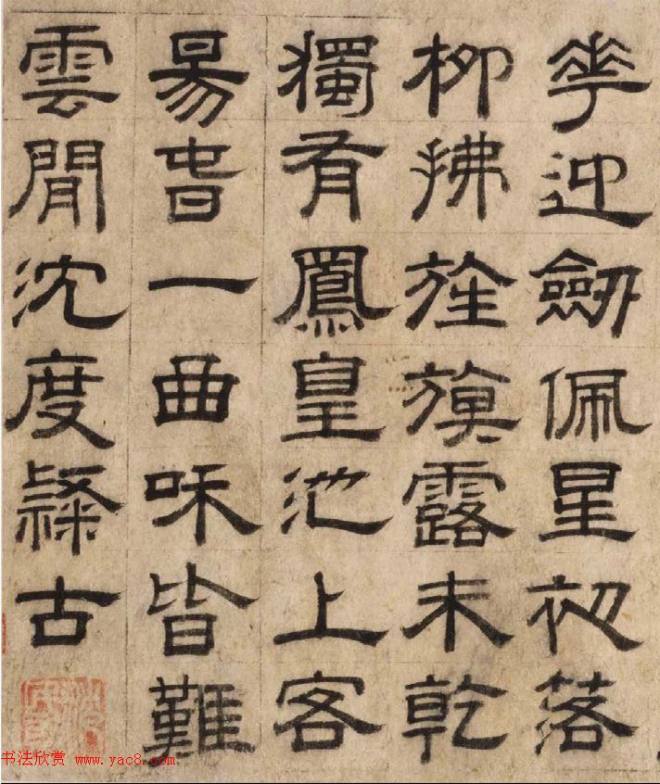 華迎劒佩星初落
柳拂旌旗露未乾
獨有鳳皇池上客
昜旾一曲咊皆難
雲閒沈度隸古
书法欣赏 www.yac8.com